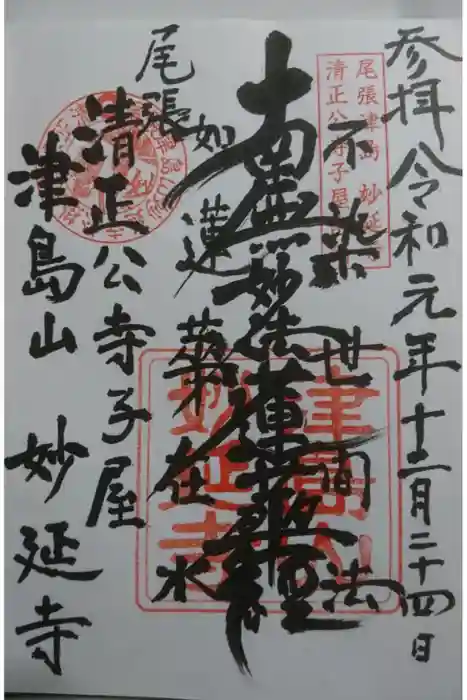 参拝令和元年十二月二十四日
不染世間法
南無妙法蓮華経
如蓮華在水
尾張
清正公寺子屋
津島山 妙延寺
尾張津島 妙延
清正公寺子屋
津島山
妙延寺